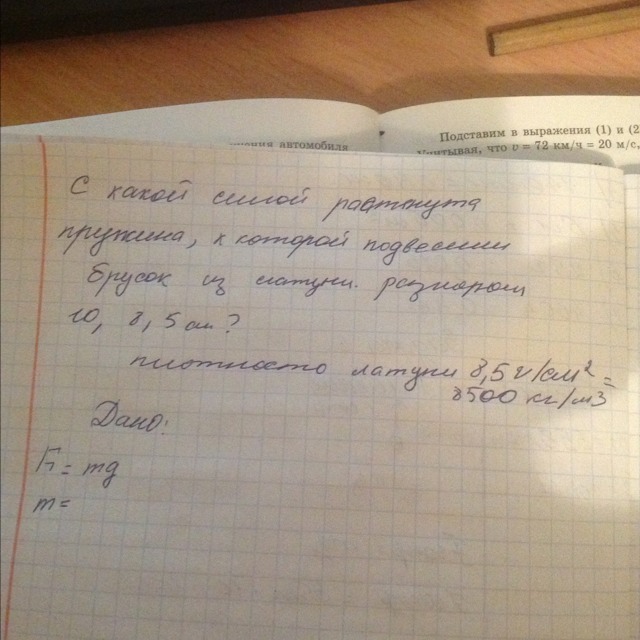 Подставим в выражения (1) и (2
Учитывая, что v = 72 км/ч = 20 м/с,
автомобиля
С какой силой растянута
пружина, к которой подвесили
брусок из латуни размером
10, 8, 5 см?
плотность латуни 8,5 г/см² =
8500 кг/м3
Дано:
F = mg
m =